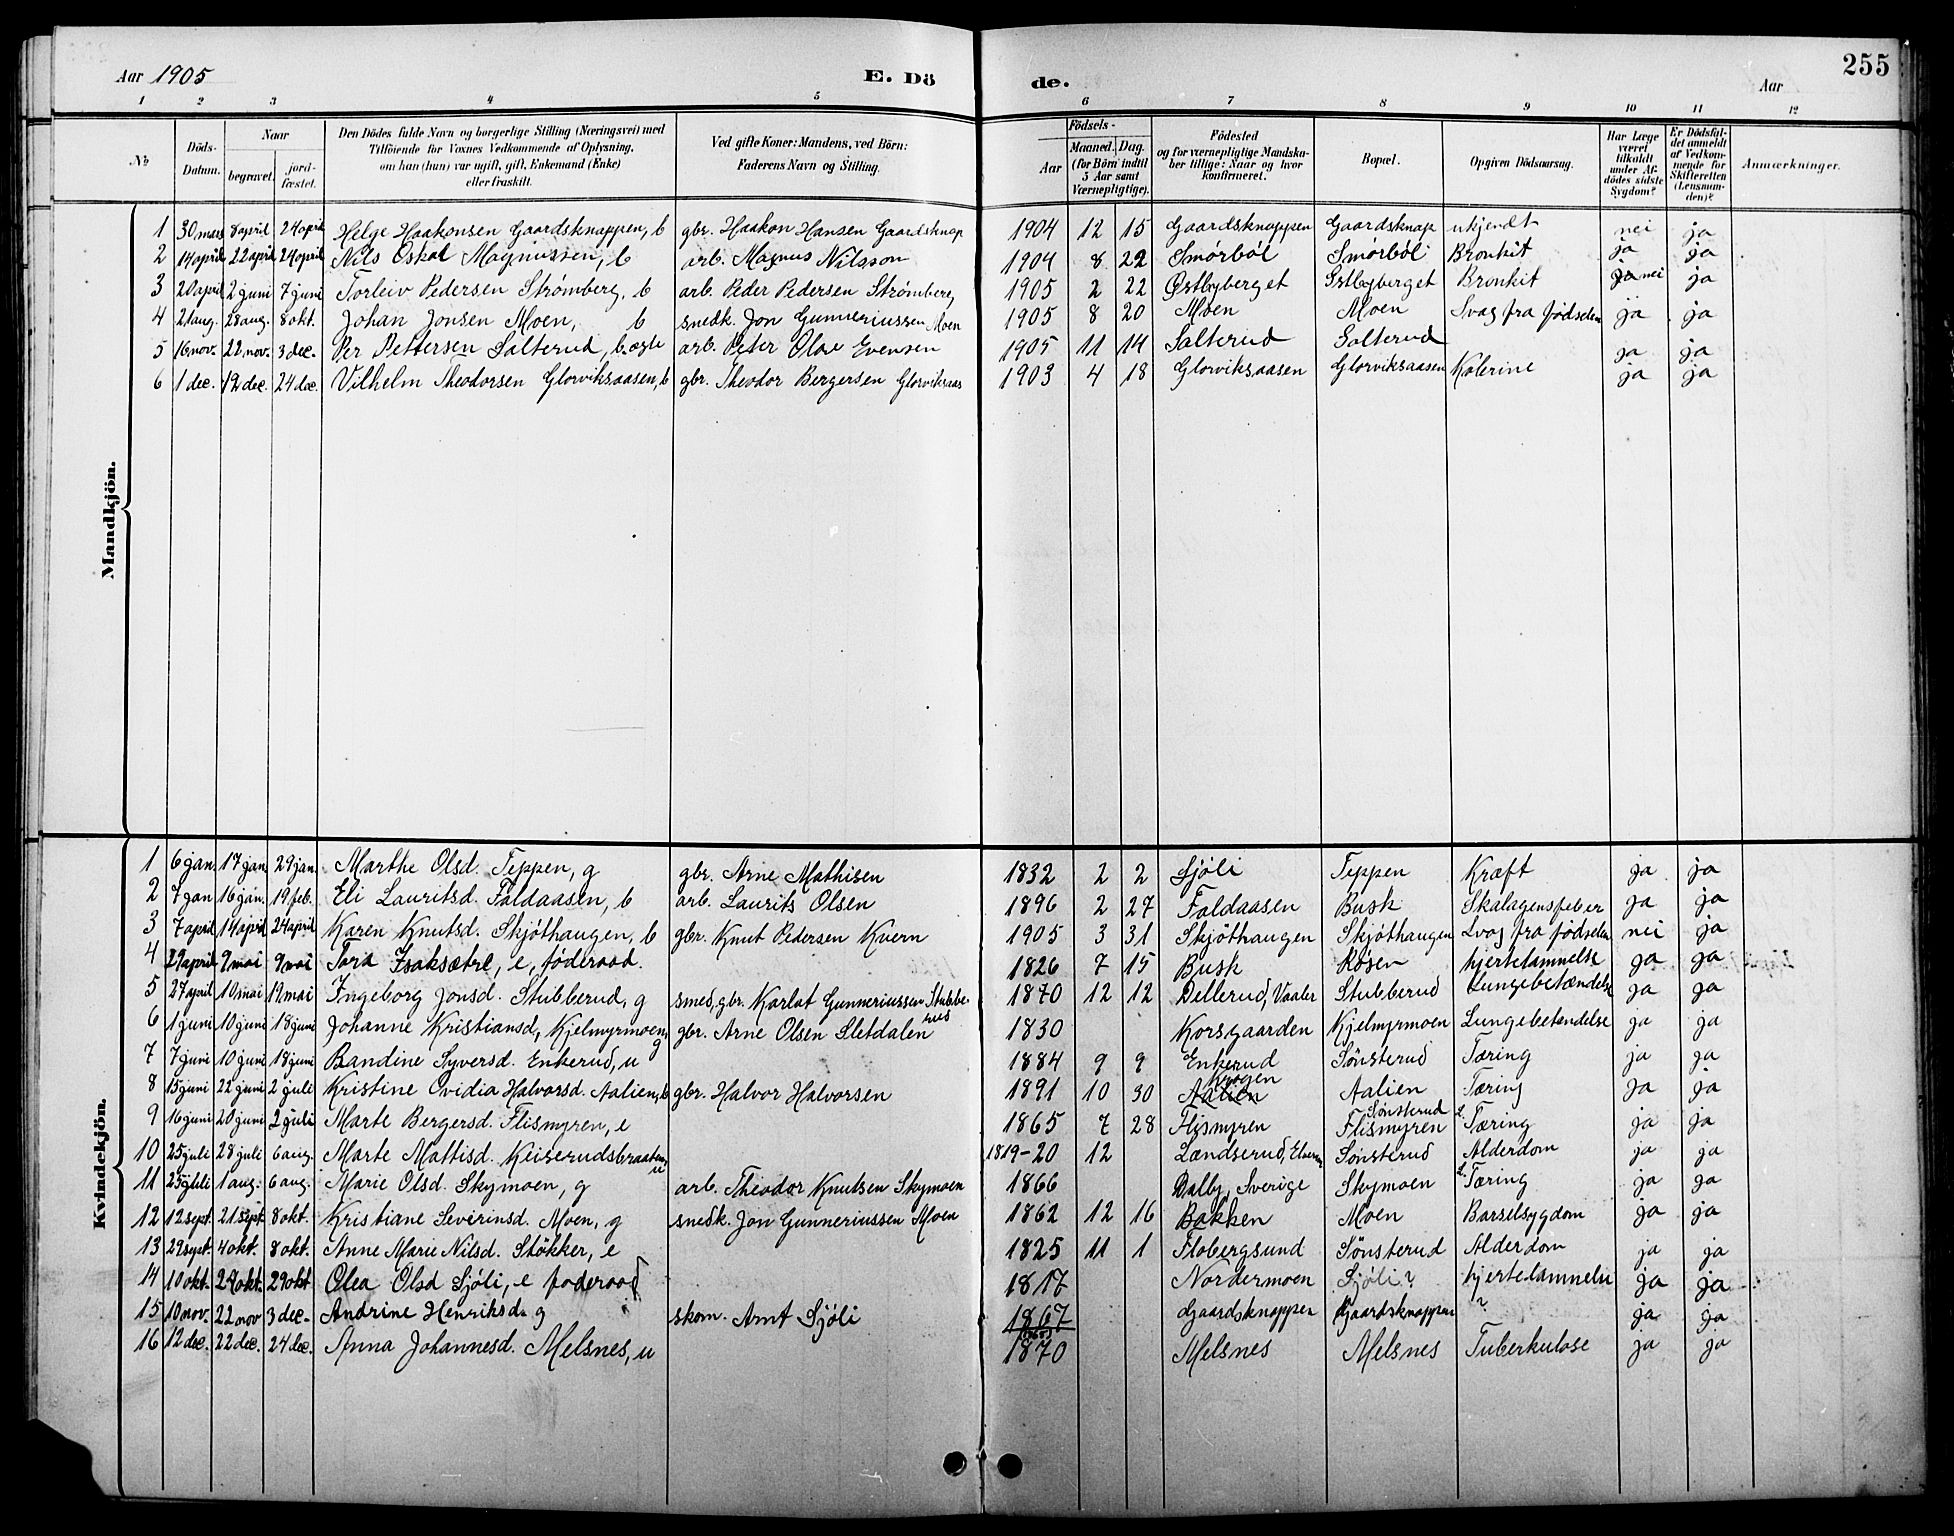 255
Aar 1905 E. Dö de. Aar
1 2 3 4 5 6 7 8 9 10 11 12
No. Döds-Datum. Naar begravet. jordfæstet. Den Dödes fulde Navn og borgerlige Stilling (Næringsvei) med Tilföiende for Voxnes Vedkommende af Oplysning, om han (hun) var ugift, gift, Enkemand (Enke) eller fraskilt. Ved gifte Koner: Mandens, ved Börn: Faderens Navn og Stilling. Födsels- Aar Maaned. Dag. (for Börn indtil 5 Aar samt Værnepligtige). Födested og for værnepligtige Mandskaber tillige: Naar og hvor konfirmeret. Bopæl. Opgiven Dödsaarsag. Har Læge været tilkaldt under Afdödes sidste Sygdom? Er Dödsfaldet anmeldt af Vedkommende for Skifteretten (Lensmanden)? Anmærkninger.
Mandkjön.
1 30 mars 8 april 24 april Helge Haakonsen Gaardsknappen, b gbr. Haakon Hansen Gaardsknap 1904 12 15 Gaardsknappen Gaardsknap ukjendt nei ja
2 14 april 22 april 24 april Nils Oskar Magnussen, b arb. Magnus Nilsson 1904 8 22 Smørbøl Smørbøl Bronkit ja ja
3 20 april 2 juni 7 juni Torleiv Pedersen Strømberg, b arb. Peder Pedersen Strømberg 1905 2 22 Østbyberget Østbyberget Bronkit ja nei ja
4 21 aug. 28 aug. 8 okt. Johan Jonsen Moen, b snedk. Jon Gunneriussen Moen 1905 8 20 Moen Moen Svag fra fødselen ja ja
5 16 nov. 22 nov. 3 dec. Per Pettersen Salterud, b. ægte arb. Peter Olav Evensen 1905 11 14 Salterud Salterud ja ja
6 1 dec. 12 dec. 24 dec. Vilhelm Theodorsen Glorviksaasen, b gbr. Theodor Bergersen Glorviksaas 1903 4 18 Glorviksaasen Glorviksaasen Kolerine ja ja
Kvindekjön.
1 6 jan. 17 jan. 29 jan. Marthe Olsd. Teppen, g gbr. Arne Mathisen 1832 2 2 Sjöli Teppen Kræft ja ja
2 7 jan 16 jan. 19 feb. Eli Lauritsd. Faldaasen, b arb. Laurits Olsen 1896 2 27 Faldaasen Busk Skalagensfeber ja ja
3 7 april 14 april 24 april Karen Knutsd. Skjöthaugen, b gbr. Knut Pedersen Kvern 1905 3 31 Skjöthaugen Skjöthaugen Svag fra fødselen nei ja
4 29 april 9 mai 9 mai Tora Isaksætre, e, föderaad. 1826 7 15 Busk Røsen hjertelammelse ja ja
5 27 april 10 mai 19 mai Ingeborg Jonsd. Stubberud, g smed, gbr. Karlot Gunneriussen Stubberud 1870 12 12 Dellerud, Vaaler Stubberud Lungebetændelse ja ja
6 1 juni 10 juni 18 juni Johanne Kristiansd, Kjelmyrmoen, g gbr. Arne Olsen Sletdalen 1830 Korsgaarden Kjelmyrmoen Lungebetændelse ja ja
7 7 juni 10 juni 18 juni Bandine Syversd. Enkerud, u 1884 9 9 Enkerud Sønsterud Tæring ja ja
8 15 juni 22 juni 2 juli Kristine Ovidia Halvorsd. Aalien, b gbr. Halvor Halvorsen 1891 10 30 Krogen Aalien Aalien Tæring ja ja
9 16 juni 20 juni 2 juli Marte Bergersd. Flismyren, e 1865 7 28 Flismyren Sønsterud Flismyren Tæring ja ja
10 25 juli 28 juli 6 aug. Marte Mattisd. Keiserudsbraaten, u 1819-20 12 Lændserud, Elverum Sønsterud Alderdom ja ja
11 25 juli 1 aug. 6 aug. Marie Olsd. Skymoen, g arb. Theodor Knutsen Skymoen 1866 Dalby, Sverige Skymoen Tæring ja ja
12 12 sept. 21 sept. 8 okt. Kristiane Severinsd. Moen, g snedk. Jon Gunneriussen Moen 1862 12 16 Bakken Moen Barselsygdom ja ja
13 29 sept. 4 okt. 8 okt. Anne Marie Nilsd. Støkker, e 1825 11 1 Flobergsund Sønsterud Alderdom ja ja
14 10 okt. 27 okt. 29 okt Olea Olsd Sjöli, e föderaad 1817 Nordermoen Sjöli? hjertelammelse ja ja
15 10 nov. 22 nov 3 dec. Andrine Henriksd. g skom. Arnt Sjöli 1867 Gaardsknappen Gaardsknappen ? ja ja
16 12 dec. 22 dec. 24 dec. Anna Johannesd. Melsnes, u 1870 Melsnes Melsnes Tuberkulose ja ja